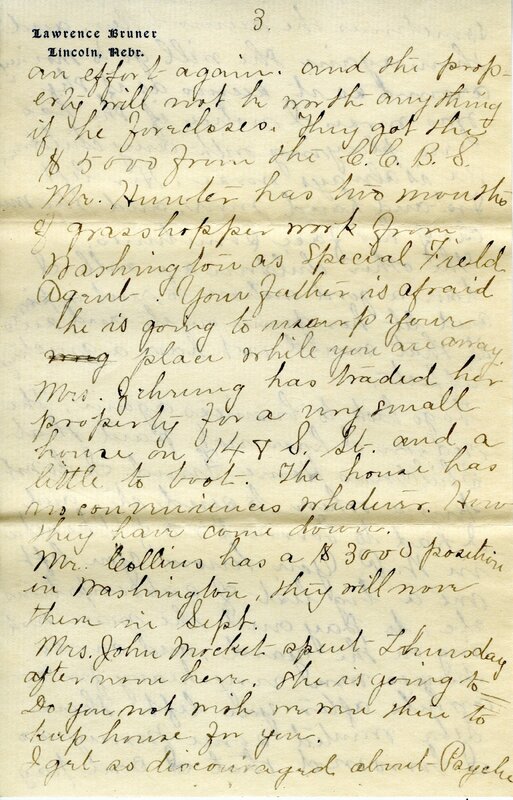 3.
Lawrence Bruner
Lincoln, Nebr.
an effort again. and the prop-
erty will not be worth anything
if he forecloses. They got the
$5000 from the C. C. B. S.
Mr. Hunter has two months
of grasshopper work from
Washington as Special Field
Agent. Your father is afraid
he is going to usurp your
place while you are away.
Mrs. Zehrung has traded her
property for a very small
house on 14 & S. St. and a
little to boot. The house has
no conveniences whatever. How
they have come down.
Mr. Collins has a $3000 position
in Washington, they will move
there in Sept.
Mrs. John Mocket spent Thursday
after noon here. She is going to
Do you not wish we were there to
keep house for you.
I get so discouraged about Psyche